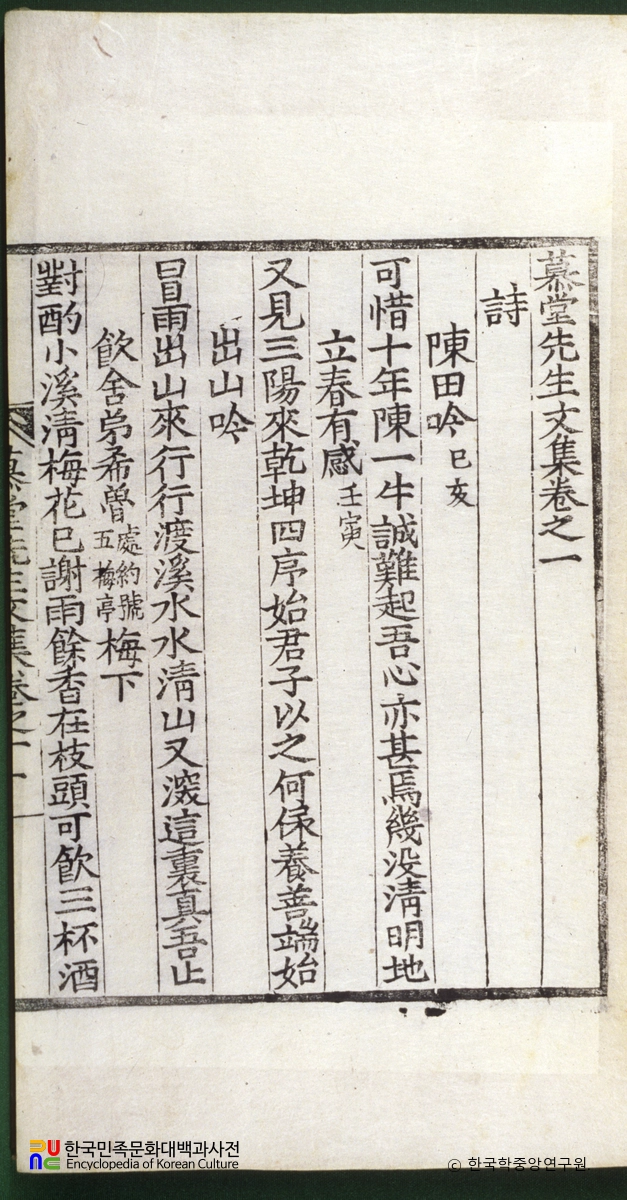 慕堂先生文集卷之一
詩
陳田吟 己亥
可惜十年陳一牛誠難起吾心亦甚焉幾没清明地
立春有感 壬寅
又見三陽來乾坤四序始君子以之何保養善端始
出山吟
冒雨出山來行行渡溪水水淸山又深這裏眞吾止
飮舍弟希魯 處約號五梅亭 梅下
對酌小溪淸梅花已謝雨餘香在枝頭可飮三杯酒
慕堂先生文集卷之一
한국민족문화대백과사전
Encyclopedia of Korean Culture
© 한국학중앙연구원